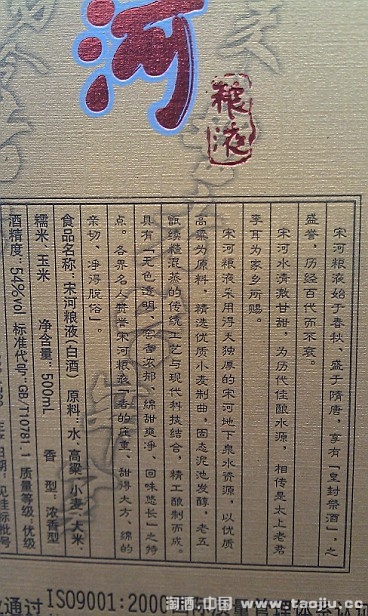 河
粮液
宋河粮液始于春秋、盛于隋唐，享有「皇封祭酒」之
盛誉，历经百代而不衰。
宋河水清澈甘甜，为历代佳酿水源，相传是太上老君
李耳为家乡所赐。
宋河粮液采用得天独厚的宋河地下泉水资源，以优质
高粱为原料，精选优质小麦制曲，固态泥池发酵，老五
甑续糙混蒸的传统工艺与现代科技结合，精工酿制而成。
具有「无色透明、窖香浓郁、绵甜爽净、回味悠长」之特
点。各界名人赞誉宋河粮液「香的庄重、甜得大方、绵的
亲切、净得脱俗」。
食品名称：宋河粮液(白酒) 原料：水、高粱、小麦、大米、
糯米、玉米 净含量：500mL 香 型：浓香型
酒精度：54%vol 标准代号：GB/T10781.1 质量等级：优级
日期：见 标批号
通过ISO9001:2000
淘酒.中国 www.taojiu.cc